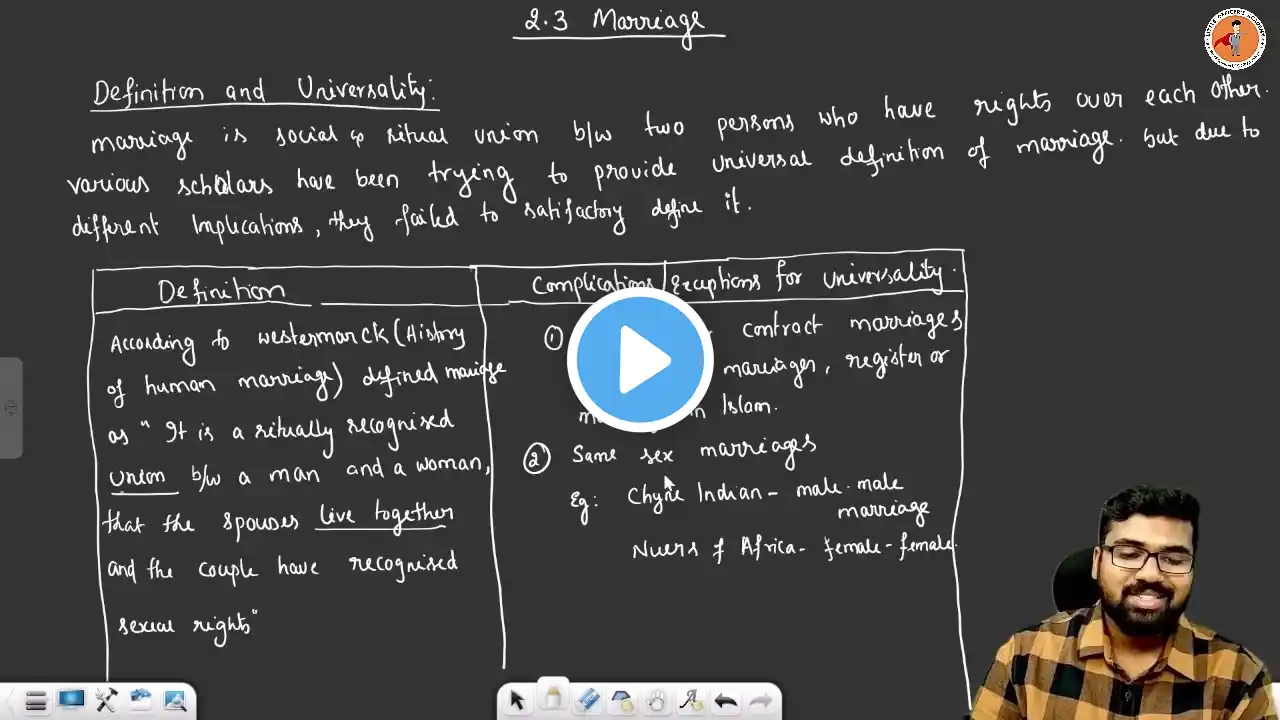 2.3 Marriage
Definition and Universality:
marriage is social & ritual union b/w two persons who have rights over each other.
various scholars have been trying to provide universal definition of marriage. but due to
different Implications, they failed to satisfactory define it.
Definition
According to westermarck (History
of human marriage) defined marriage
as "It is a ritually recognised
union b/w a man and a woman,
that the spouses live together
and the couple have recognised
sexual rights"
Complications/Exceptions for universality.
① contract marriages
marriages, register or
in Islam.
② Same sex marriages
Eg: Chyne Indian - male-male
marriage
Nuers of Africa - female-female.